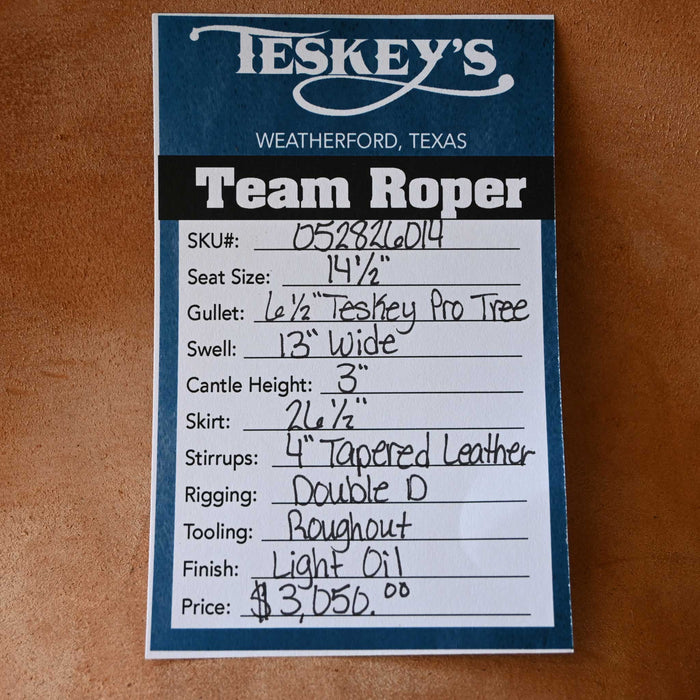 TESKEY'S
WEATHERFORD, TEXAS
Team Roper
SKU#: 052826014
Seat Size: 14 1/2"
Gullet: 6 1/2" Teskey Pro Tree
Swell: 13" Wide
Cantle Height: 3"
Skirt: 26 1/2"
Stirrups: 4" Tapered Leather
Rigging: Double D
Tooling: Roughout
Finish: Light Oil
Price: $3,050.00